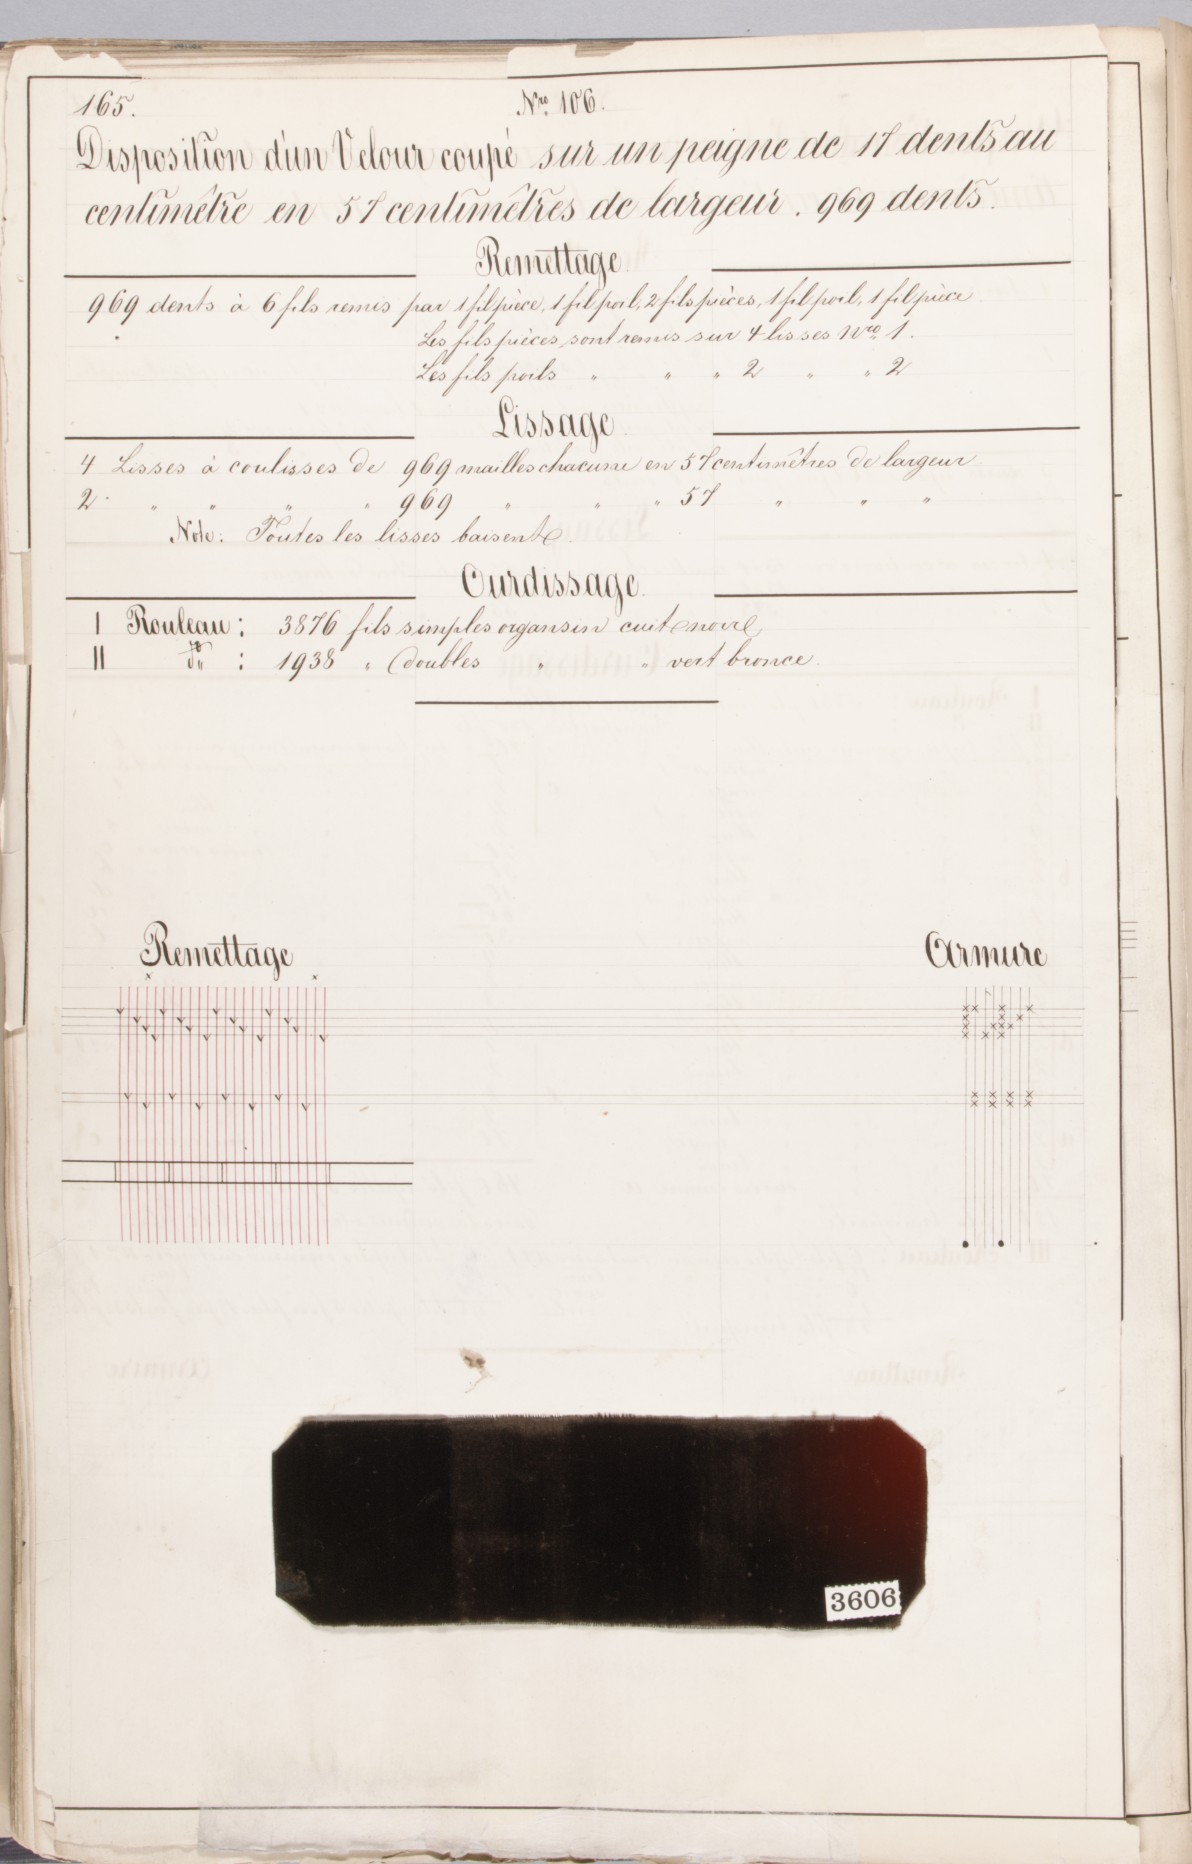 165.
Nro. 106.
Disposition d'un Velour coupé sur un peigne de 17 dents au
centimêtre en 57 centimêtres de largeur. 969 dents.
Remettage.
969 dents à 6 fils remis par 1 fil pièce, 1 fil poil, 2 fils pièces, 1 fil poil, 1 fil pièce
Les fils pièces sont remis sur 4 lisses Nro. 1.
Les fils poils " " " 2 " " 2
Lissage.
4 Lisses à coulisses de 969 mailles chacune en 57 centimêtres de largeur.
2 " " " " 969 " " " 57 " " "
Note: Toutes les lisses baisent.
Ourdissage.
I Rouleau: 3876 fils simples organsin cuit noir
II do. : 1938 " doubles " " vert bronce.
Remettage
Armure
3606